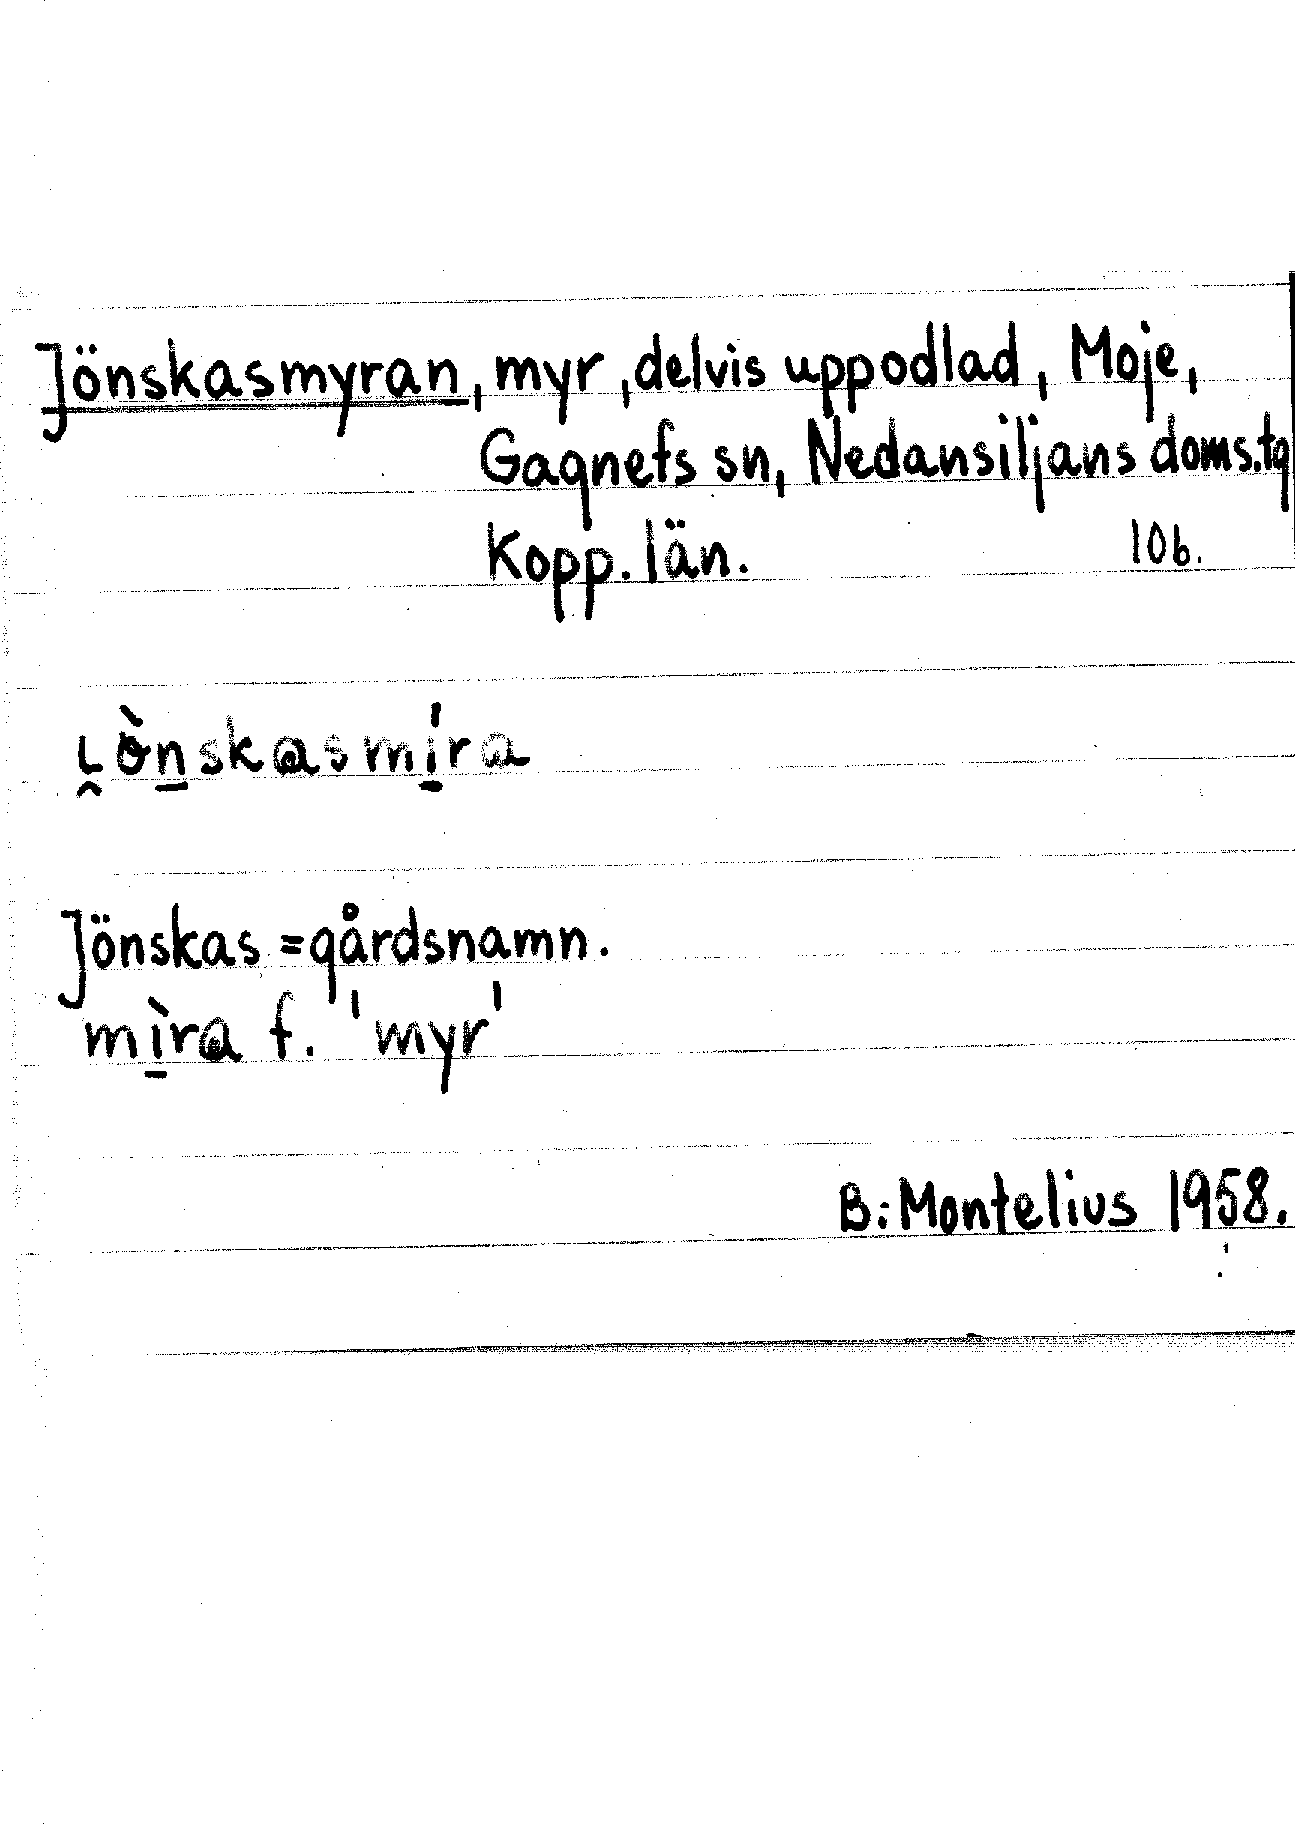 Jönskasmyran, myr, delvis uppodlad, Moje,
Gagnefs sn, Nedansiljans doms.tg
Kopp. län. 106.
ɩ̯ò̵n̠skasmí̠ra
Jönskas = gårdsnamn.
mì̠ra f. 'myr'
B. Montelius 1958.